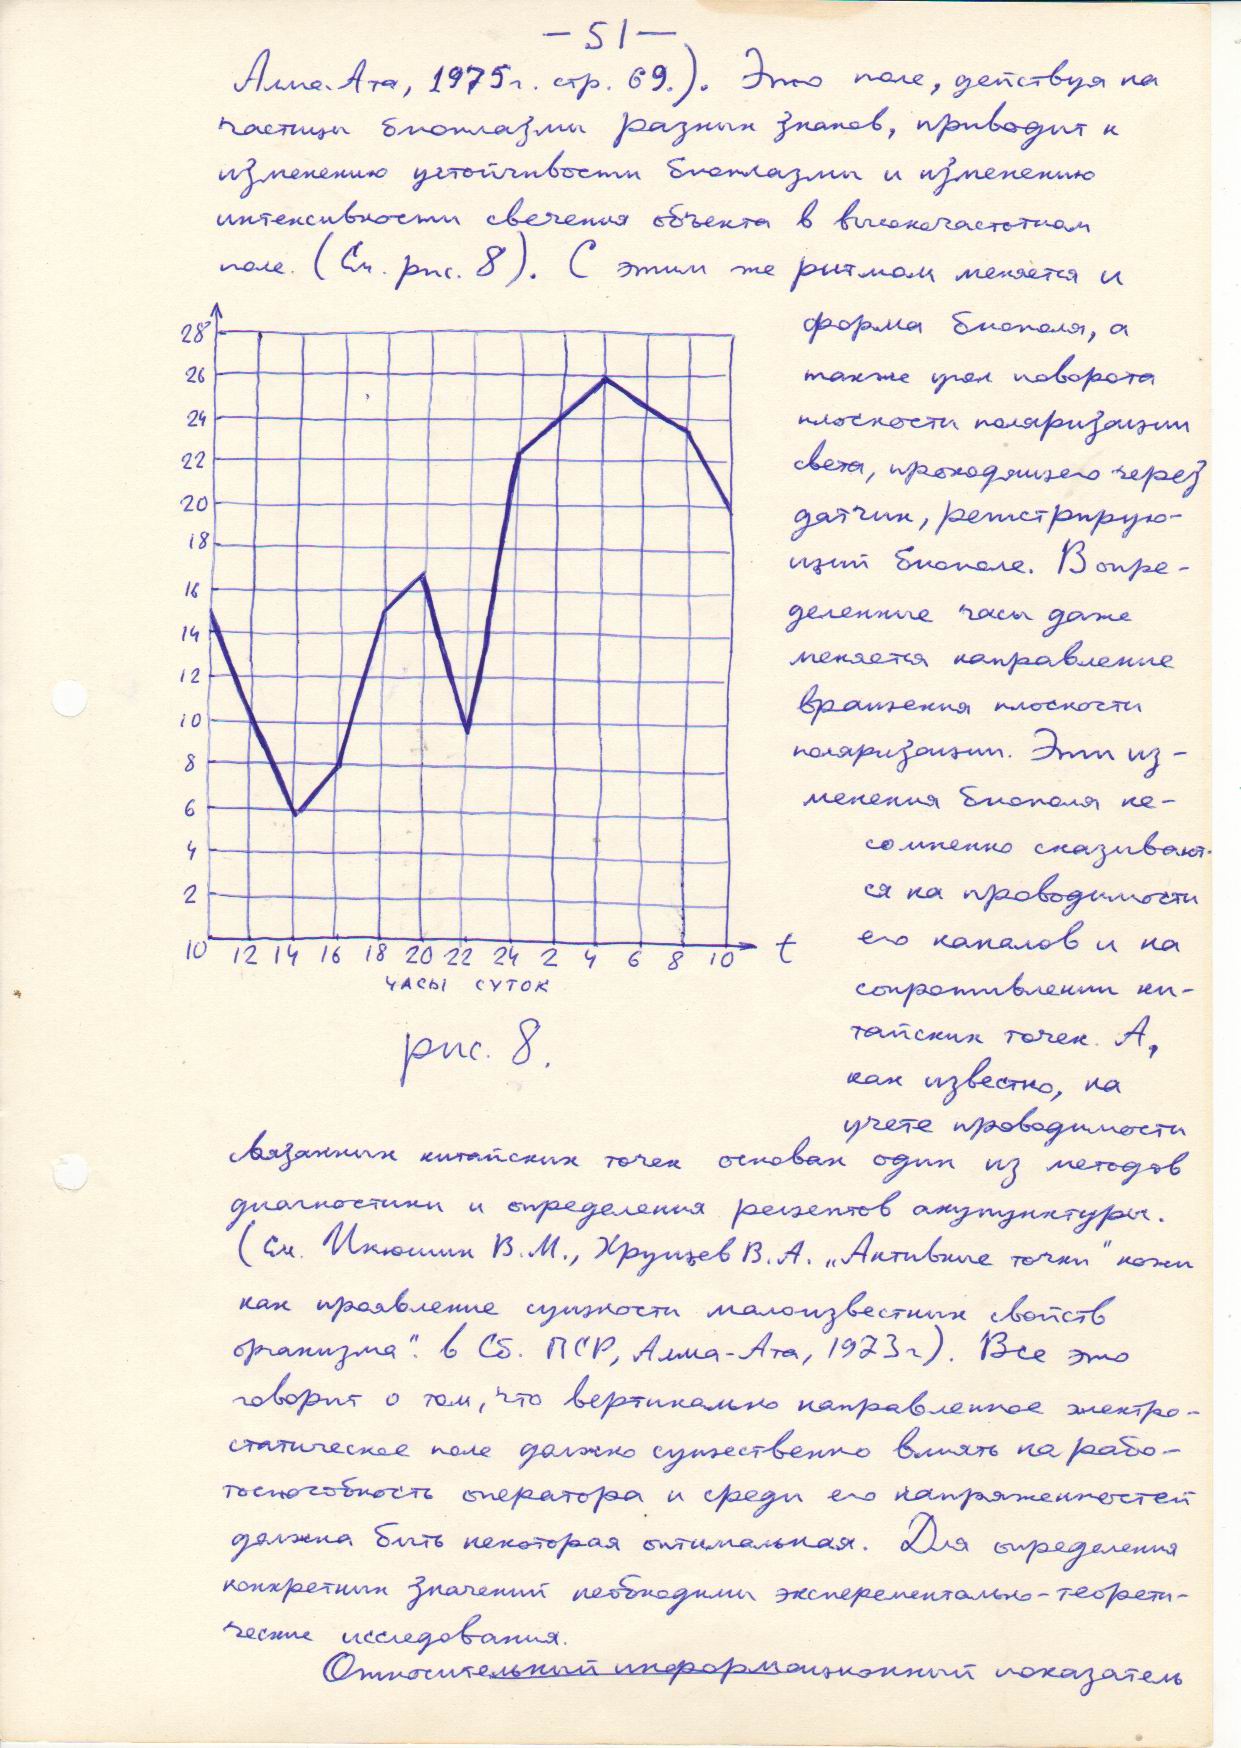 — 51 —
Алма-Ата, 1975г. стр. 69.). Это поле, действуя на
частицы биоплазмы разных знаков, приводит к
изменению устойчивости биоплазмы и изменению
интенсивности свечения объекта в высокочастотном
поле. (См. рис. 8). С этим же ритмом меняется и
форма биополя, а
также угол поворота
плоскости поляризации
света, проходящего через
датчик, регистрирую-
щий биополе. В опре-
деленные часы даже
меняется направление
вращения плоскости
поляризации. Эти из-
менения биополя не-
сомненно сказывают-
ся на проводимости
его каналов и на
сопротивлении ки-
тайских точек. А,
как известно, на
учете проводимости
28
26
24
22
20
18
16
14
12
10
8
6
4
2
10 12 14 16 18 20 22 24 2 4 6 8 10 t
ЧАСЫ СУТОК
рис. 8.
связанных китайских точек основан один из методов
диагностики и определения рецептов акупунктуры.
(См. Инюшин В.М., Хрущев В.А. „Активные точки" кожи
как проявление сущности малоизвестных свойств
организма". в Сб. ПСР, Алма-Ата, 1973г). Все это
говорит о том, что вертикально направленное электро-
статическое поле должно существенно влиять на рабо-
тоспособность оператора и среди его напряженностей
должна быть некоторая оптимальная. Для определения
конкретных значений необходимы эксперементально-теорети-
ческие исследования.
Относительный информационный показатель